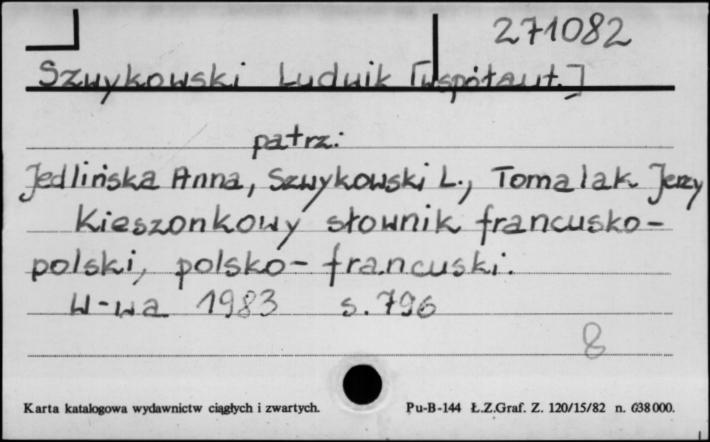 271082
Szwykowski Ludwik [współaut.]
patrz:
Jedlińska Anna, Szwykowski L., Tomalak Jerzy
Kieszonkowy słownik francusko-
polski, polsko-francuski.
W-wa 1983 s. 796
8
Karta katalogowa wydawnictw ciągłych i zwartych. Pu-B-144 Ł.Z.Graf. Z. 120/15/82 n. 638 000.